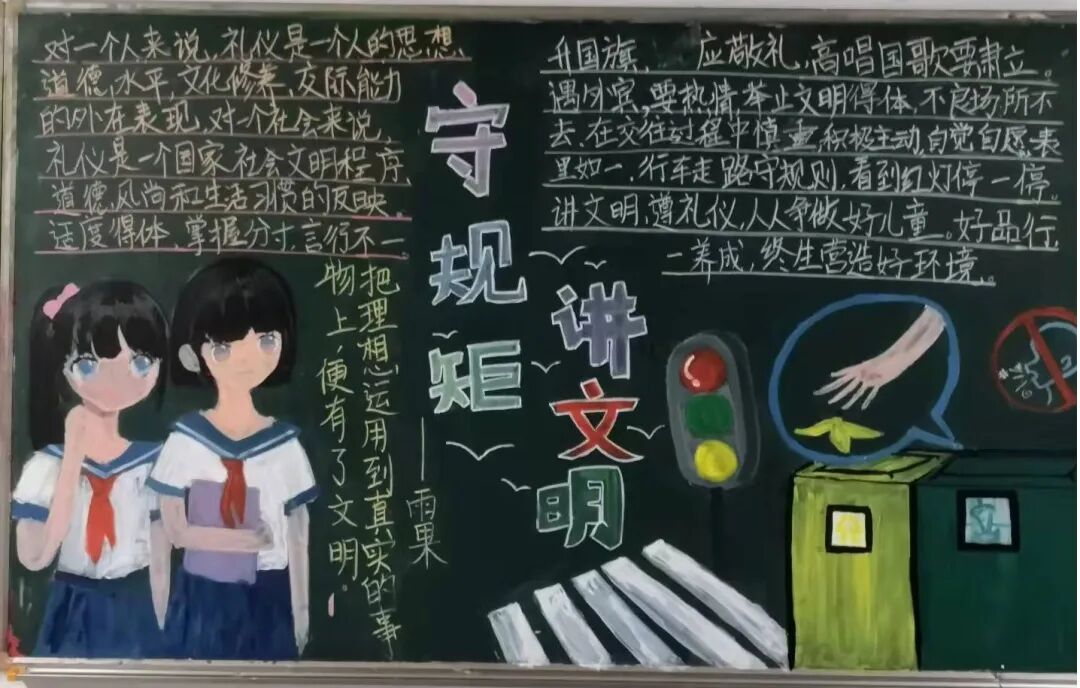 对一个人来说，礼仪是一个人的思想
道德，水平，文化修养，交际能力
的外在表现，对一个社会来说，
礼仪是一个国家社会文明程序，
道德风尚和生活习惯的反映。
适度得体，掌握分寸，言行不一
守规矩
讲文明
把理想运用到真实的事
物上，便有了文明。
——雨果
升国旗，应敬礼，高唱国歌要肃立。
遇外宾，要热情，举止文明得体，不良场所不
去，在交往过程中慎重，积极主动，自觉自愿，表
里如一，行车走路守规则，看到红灯停一停。
讲文明，遵礼仪，人人争做好儿童。好品行
一养成，终生营造好环境。